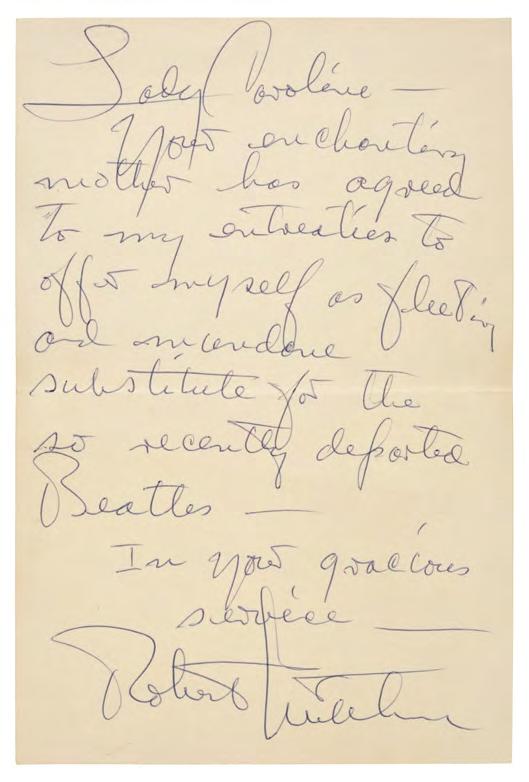 Lady Caroline —
Your enchanting
mother has agreed
to my entreaties to
offer myself as fleeting
and mundane
substitute for the
so recently departed
Beatles —
In your gracious
service —
Robert Mitchum